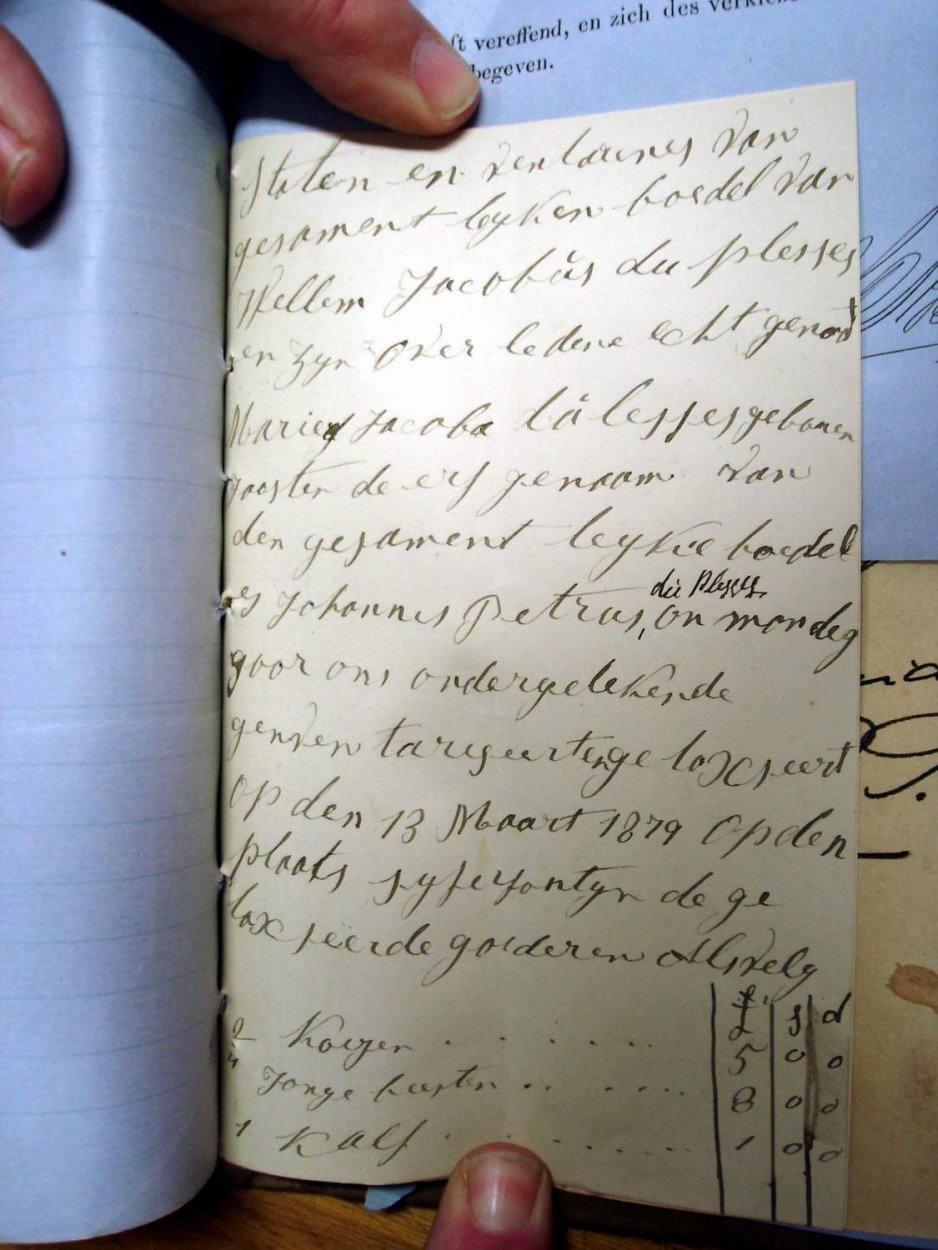 ft vereffend, en zich des verkieze
begeven.
Staten en ventaunes van
gesament leyken boedel van
Wellem Jacobus du plesses
en zyn over ledene echt genoot
Maries Jacoba du lesses gebouen
naasten de erf genaam van
den gesament leykce boedel
es Johannes Petrus, du Plesses on mondeg
goor ons ondergetekende
op den 13 Maart 1879 op den
plaats syferfontyn de ge
taxseerde goederen Alsvelg
£ s d
2 Koeyen . . . . . . 5 0 0
4 Jonge beesten . . . . . . 8 0 0
1 Kalf . . . . . . 1 0 0